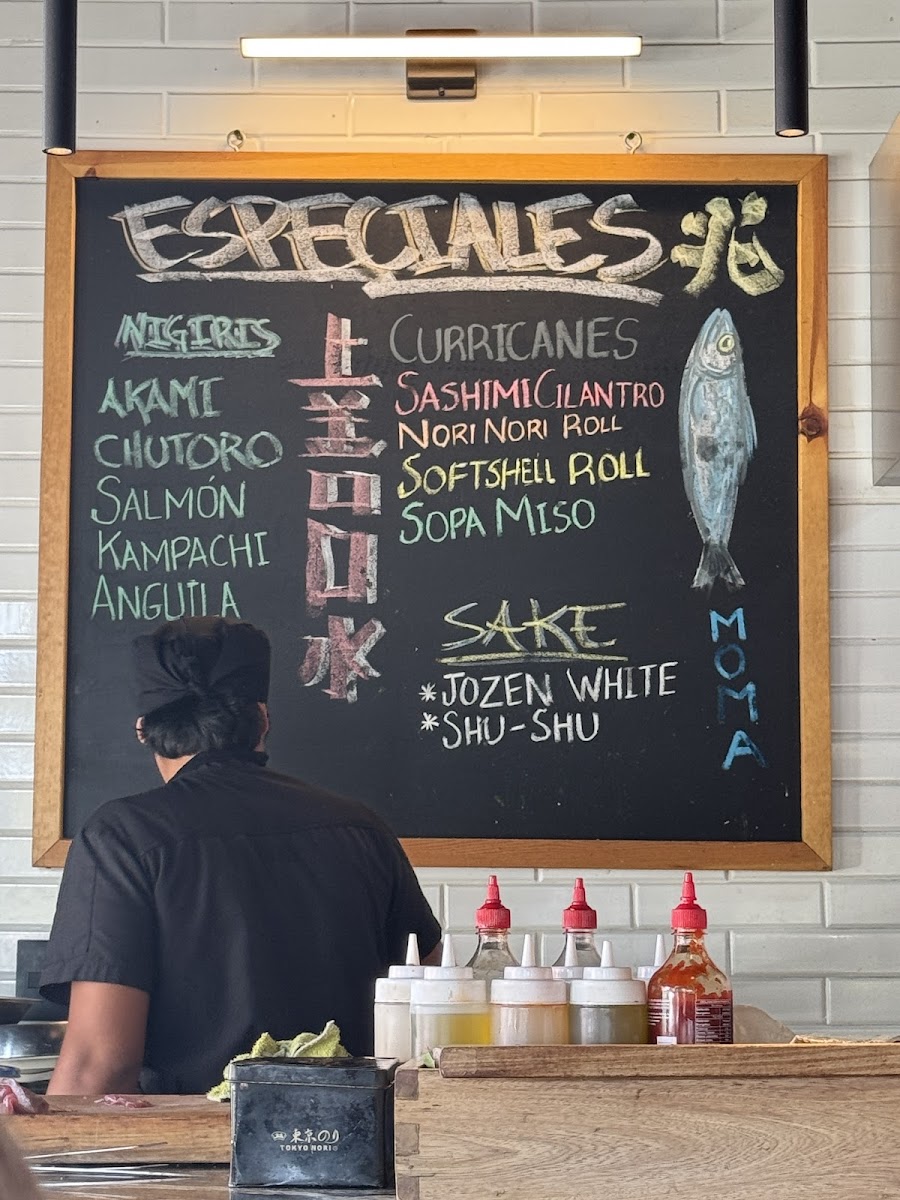 ESPECIALES
NIGIRIS
AKAMI
CHUTORO
SALMÓN
KAMPACHI
ANGUILA
CURRICANES
SASHIMI CILANTRO
NORI NORI ROLL
SOFTSHELL ROLL
SOPA MISO
SAKE
*JOZEN WHITE
*SHU-SHU
MOMA
東京のり
TOKYO NORI